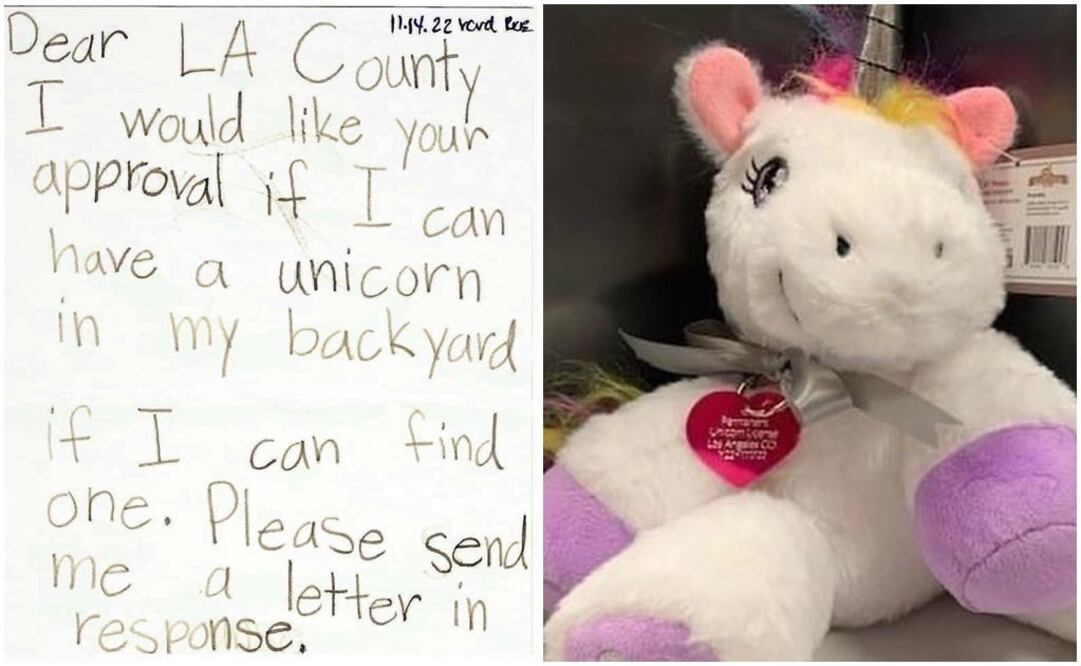 11.14.22 rcvd
Dear LA County
I would like your
approval if I can
have a unicorn
in my backyard
if I can find
one. Please send
me a letter in
response.
Permanent
Unicorn License
Los Angeles CO